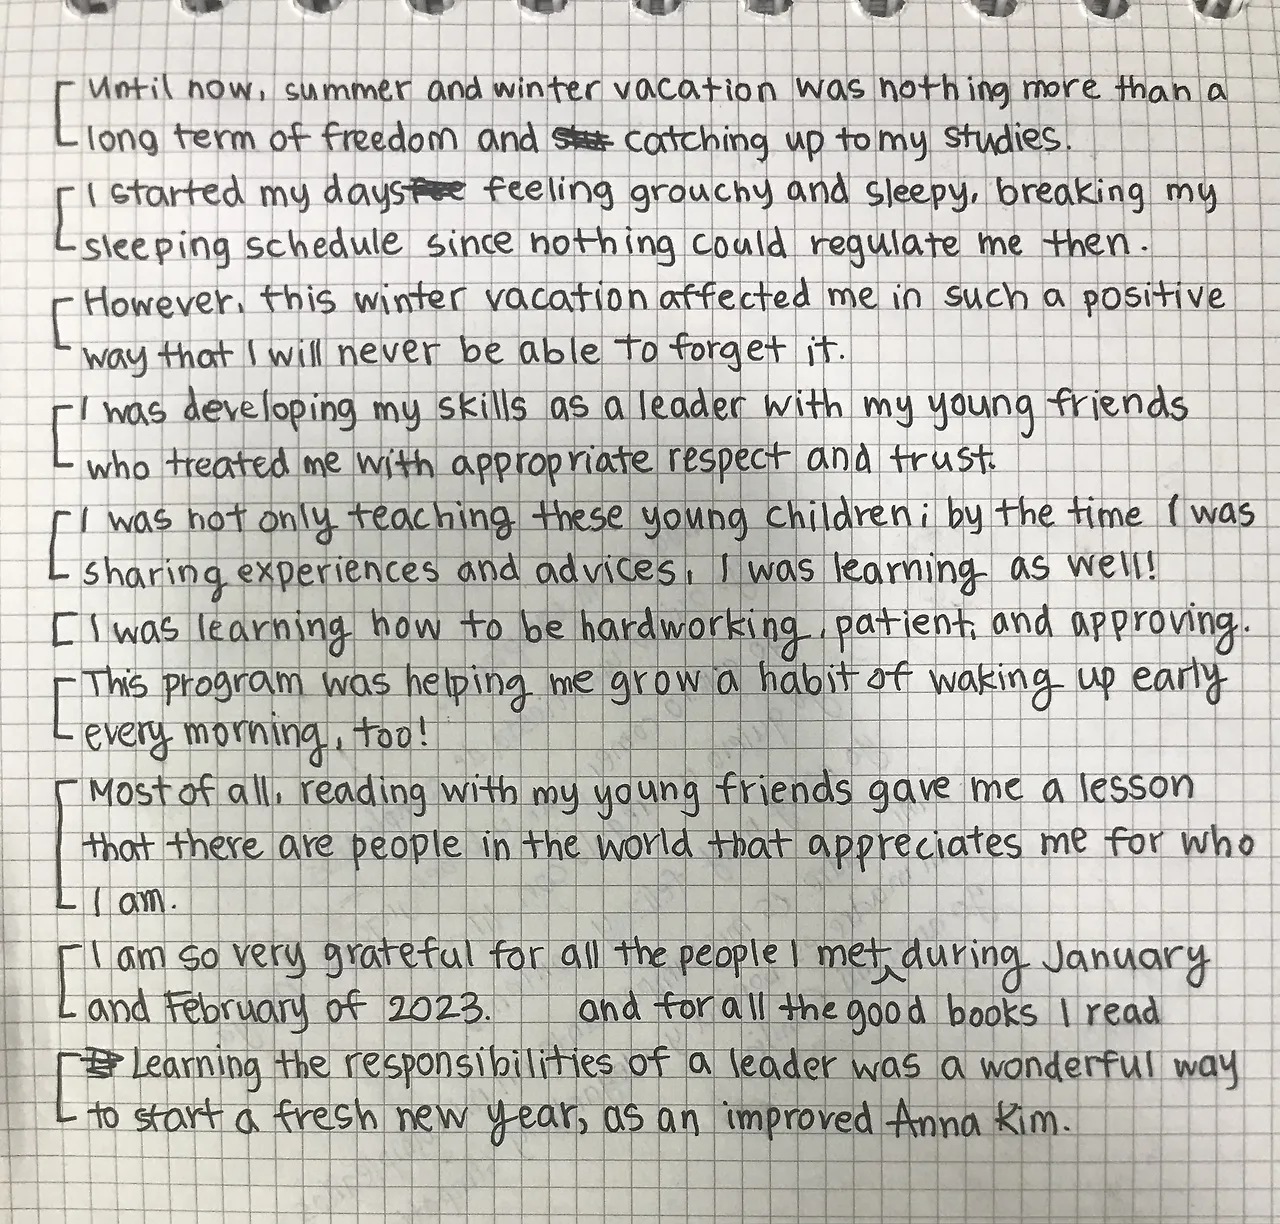 Until now, summer and winter vacation was nothing more than a
long term of freedom and catching up to my studies.
I started my days feeling grouchy and sleepy, breaking my
sleeping schedule since nothing could regulate me then.
However, this winter vacation affected me in such a positive
way that I will never be able to forget it.
I was developing my skills as a leader with my young friends
who treated me with appropriate respect and trust.
I was not only teaching these young children; by the time I was
sharing experiences and advices, I was learning as well!
I was learning how to be hardworking, patient, and approving.
This program was helping me grow a habit of waking up early
every morning, too!
Most of all, reading with my young friends gave me a lesson
that there are people in the world that appreciates me for who
I am.
I am so very grateful for all the people I met, during January
and February of 2023. and for all the good books I read
Learning the responsibilities of a leader was a wonderful way
to start a fresh new year, as an improved Anna Kim.